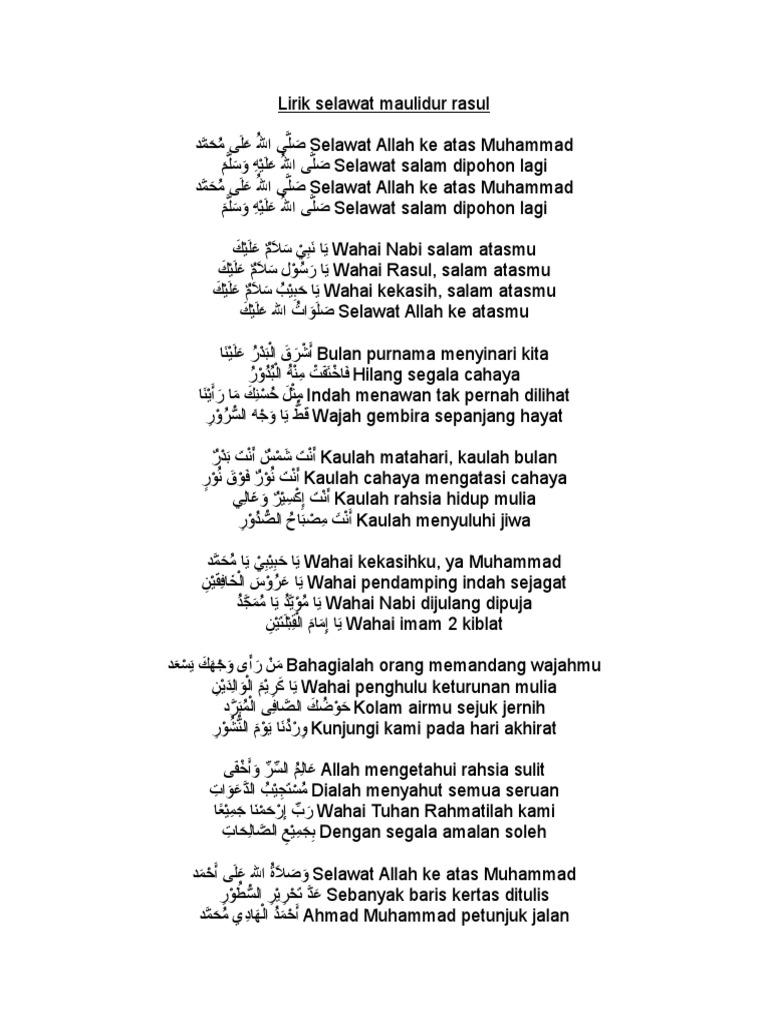 Lirik selawat maulidur rasul
صَلَّى اللهُ عَلَى مُحَمَّد Selawat Allah ke atas Muhammad
صَلَّى اللهُ عَلَيْهِ وَسَلَّمَ Selawat salam dipohon lagi
صَلَّى اللهُ عَلَى مُحَمَّد Selawat Allah ke atas Muhammad
صَلَّى اللهُ عَلَيْهِ وَسَلَّمَ Selawat salam dipohon lagi
يَا نَبِيْ سَلاَمٌ عَلَيْكَ Wahai Nabi salam atasmu
يَا رَسُوْل سَلاَمٌ عَلَيْكَ Wahai Rasul, salam atasmu
يَا حَبِيْبُ سَلاَمٌ عَلَيْكَ Wahai kekasih, salam atasmu
صَلَوَاتُ الله عَلَيْكَ Selawat Allah ke atasmu
أَشْرَقَ الْبَدْرُ عَلَيْنَا Bulan purnama menyinari kita
فَاخْتَفَتْ مِنْهُ الْبُدُوْرُ Hilang segala cahaya
مِثْلَ حُسْنِكَ مَا رَأَيْنَا Indah menawan tak pernah dilihat
قَطُّ يَا وَجْه السُّرُوْرِ Wajah gembira sepanjang hayat
أَنْتَ شَمْسٌ أَنْتَ بَدْرٌ Kaulah matahari, kaulah bulan
أَنْتَ نُوْرٌ فَوْقَ نُوْرٍ Kaulah cahaya mengatasi cahaya
أَنْتَ إِكْسِيْرٌ وَغَالِي Kaulah rahsia hidup mulia
أَنْتَ مِصْبَاحُ الصُّدُوْرِ Kaulah menyuluhi jiwa
يَا حَبِيْبِيْ يَا مُحَمَّد Wahai kekasihku, ya Muhammad
يَا عَرُوْسَ الْخَافِقَيْنِ Wahai pendamping indah sejagat
يَا مُؤَيَّدُ يَا مُمَجَّدُ Wahai Nabi dijulang dipuja
يَا إِمَامَ الْقِبْلَتَيْنِ Wahai imam 2 kiblat
مَنْ رَأَى وَجْهَكَ يَسْعَد Bahagialah orang memandang wajahmu
يَا كَرِيْمَ الْوَالِدَيْنِ Wahai penghulu keturunan mulia
حَوْضُكَ الصَّافِى الْمُبَرَّد Kolam airmu sejuk jernih
وِرْدُنَا يَوْمَ النُّشُوْرِ Kunjungi kami pada hari akhirat
عَالِمُ السِّرِّ وَأَخْفَى Allah mengetahui rahsia sulit
مُسْتَجِيْبُ الدَّعَوَاتِ Dialah menyahut semua seruan
رَبِّ إِرْحَمْنا جَمِيْعًا Wahai Tuhan Rahmatilah kami
بِجَمِيْعِ الصَّالِحَاتِ Dengan segala amalan soleh
وَصَلاَةُ الله عَلَى أَحْمَد Selawat Allah ke atas Muhammad
عَدَّ تَحْرِيْرِ السُّطُوْرِ Sebanyak baris kertas ditulis
أَحْمَدُ الْهَادِي مُحَمَّد Ahmad Muhammad petunjuk jalan